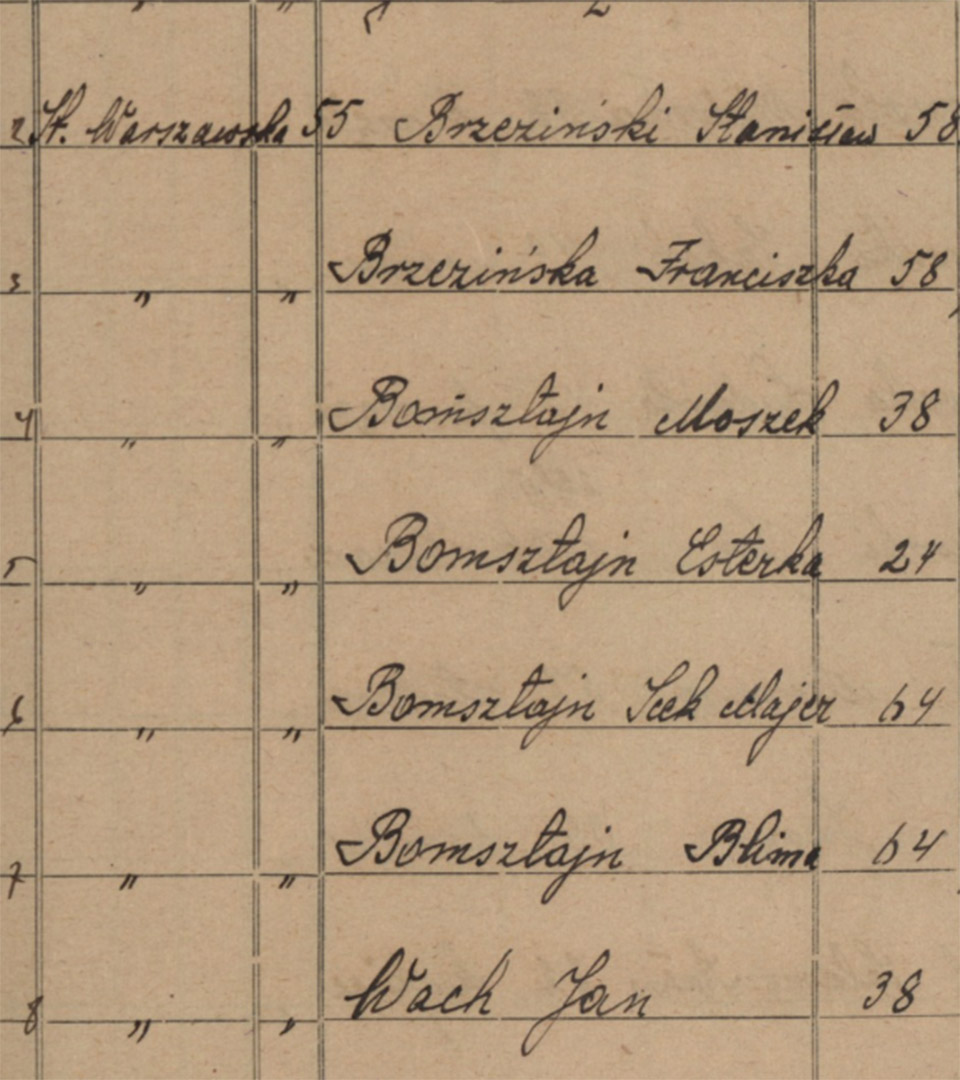 2 St. Warszawska 55 Brzeziński Stanisław 58
3 " " Brzezińska Franciszka 58
4 " " Bomsztajn Moszek 38
5 " " Bomsztajn Esterka 24
6 " " Bomsztajn Icek Majer 64
7 " " Bomsztajn Blima 64
8 " " Wach Jan 38